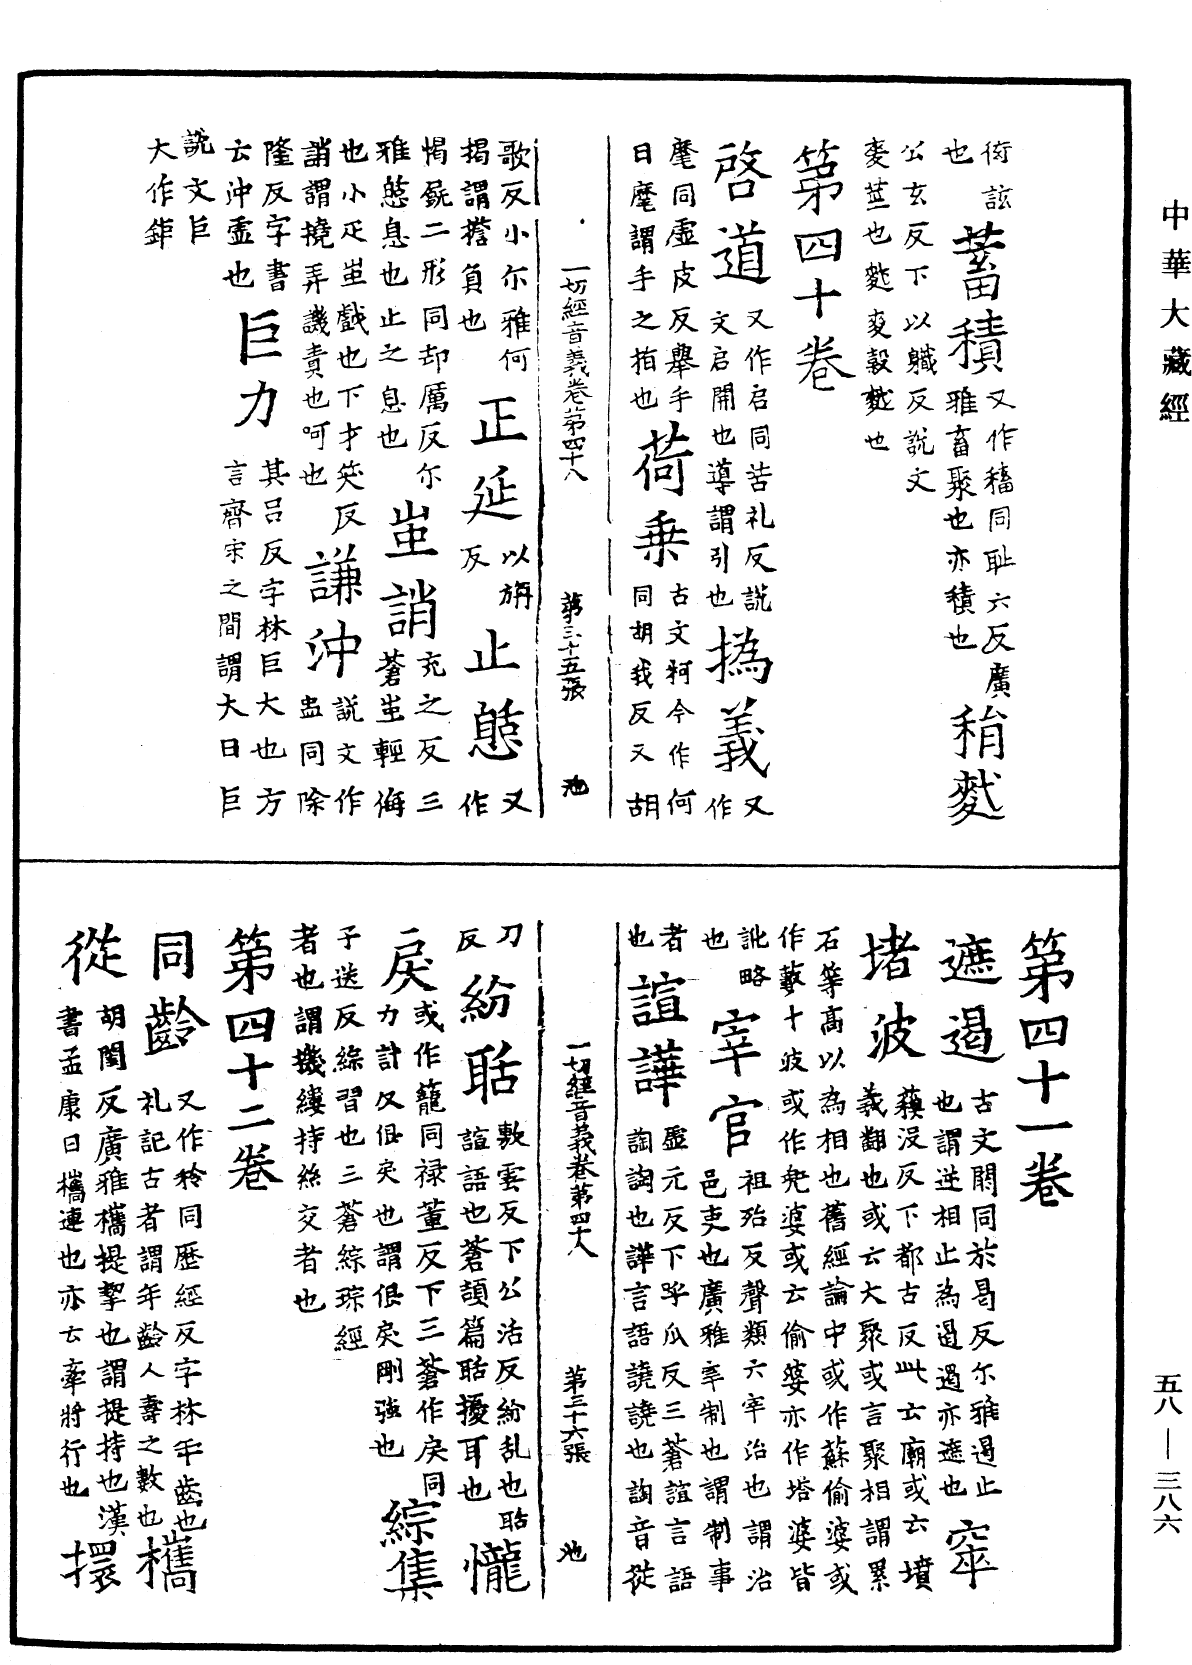 中華大藏經
街該
也
蓄積
又作稸同耻六反廣
雅畜聚也亦積也
稍䴬
公玄反下以軄反說文
麦莖也䴬麦䅽䴬也
第四十卷
啓道
又作启同苦礼反說
文启開也導謂引也
撝義
又作
麾同虛皮反舉手
曰麾謂手之指也
荷乗
古文柯今作何
同胡我反又胡
一切經音義卷第四十八 第三十五張 池
歌反小尔雅何
揭謂擔負也
正延
以旃
反
止憩
又作
愒㱥二形同却厲反尔
雅憩息也止之息也
蚩誚
充之反三
蒼蚩輕侮
也小疋蚩戲也下才笑反
誚謂撓弄譏責也呵也
謙沖
說文作
盅同除
隆反字書
云沖虛也
巨力
其吕反字林巨大也方
言齊宋之間謂大曰巨
說文巨
大作鉅
第四十一卷
遮遏
古文閼同於曷反尔雅遏止
也謂逆相止為遏遏亦遮也
窣堵波
蘓没反下都古反此云廟或云墳
義翻也或云大聚或言聚相謂累
石等高以為相也舊經論中或作蘇偷婆或
作藪斗波或作兜婆或云偷婆亦作塔婆皆
訛略
也
宰官
祖殆反聲類六宰治也謂治
邑吏也廣雅宰制也謂制事
者
也
諠譁
虛元反下呼瓜反三蒼諠言語
詾詾也譁言語譊譊也詾音從
一切經音義卷第四十八 第三十六張 池
刀
反
紛聒
敷雲反下公活反紛乱也聒
諠語也蒼頡篇聒擾耳也
㦕戾
或作籠同禄董反下三蒼作戾同
力計反佷戾也謂佷戾剛強也
綜集
子送反綜習也三蒼綜琮經
者也謂機縷持絲交者也
第四十二卷
同齡
又作秢同歷經反字林年齒也
礼記古者謂年齡人壽之數也
㩦從
胡閨反廣雅㩦提挈也謂提持也漢
書孟康曰㩦連也亦云牽將行也
擐
五八—三八六